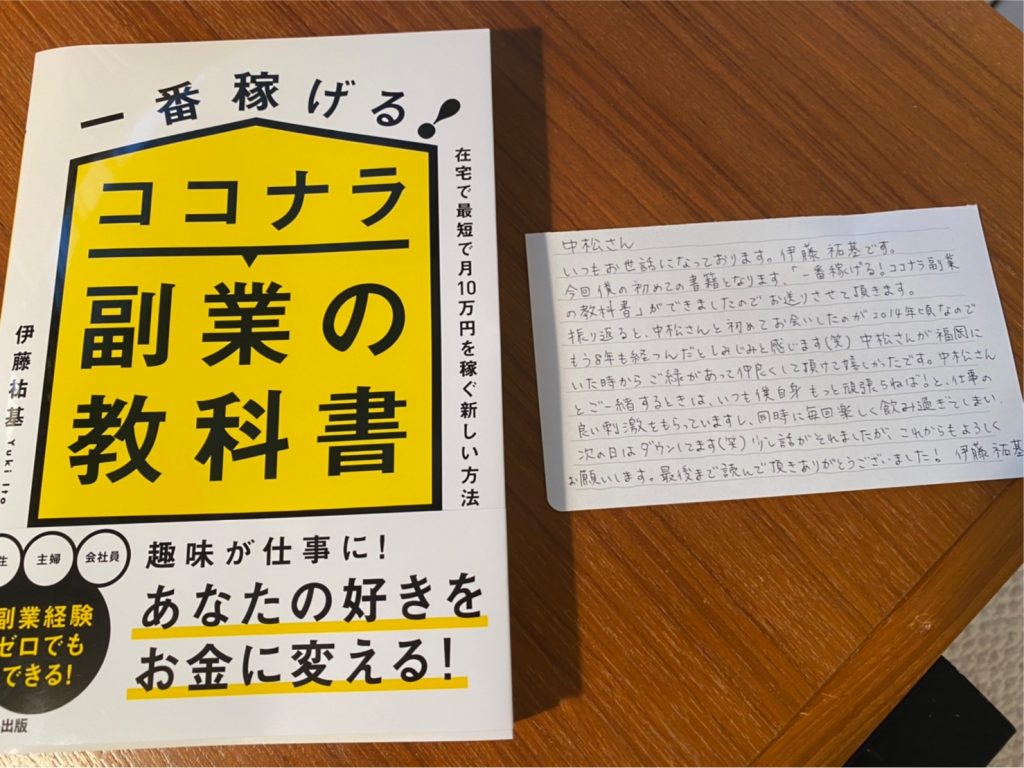 一番稼げる!
ココナラ
副業の
教科書
在宅で最短で月10万円を稼ぐ新しい方法
伊藤祐基 Yuki Ito
生
主婦
会社員
副業経験
ゼロでも
できる!
趣味が仕事に!
あなたの好きを
お金に変える!
出版
中松さん
いつもお世話になっております。伊藤祐基です。
今回僕の初めての書籍となります、「一番稼げる!ココナラ副業
の教科書」ができましたのでお送りさせて頂きます。
振り返ると、中松さんと初めてお会いしたのが2014年頃なので
もう8年も経つんだとしみじみと感じます(笑) 中松さんが福岡に
いた時からご縁があって仲良くして頂けて嬉しかったです。中松さん
とご一緒するときは、いつも僕自身もっと頑張らねば!と、仕事の
良い刺激をもらっていますし、同時に毎回楽しく飲み過ぎてしまい、
次の日はダウンしてます(笑)少し話がそれましたが、これからもよろしく
お願いします。最後まで読んで頂きありがとうございました! 伊藤祐基